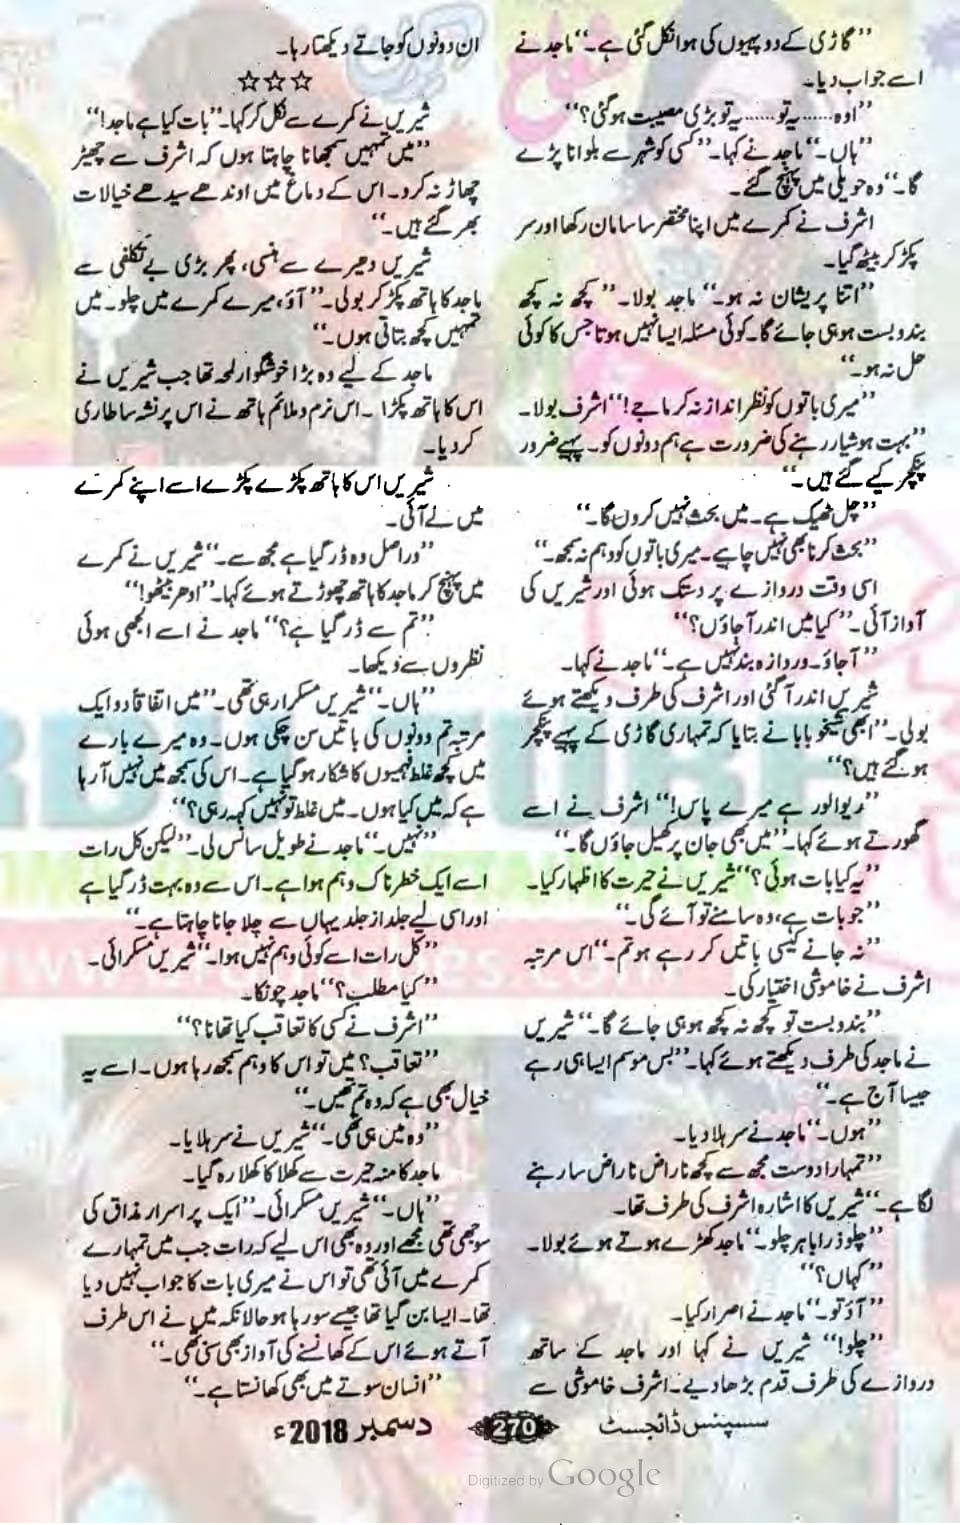 ’’گاڑی کے دو پہیوں کی ہوا نکل گئی ہے۔‘‘ ماجد نے
اسے جواب دیا۔
’’اوہ...... یہ تو...... یہ تو بڑی مصیبت ہو گئی؟‘‘
’’ہاں۔‘‘ ماجد نے کہا۔ ’’کسی کو شہر سے بلوانا پڑے
گا۔‘‘ وہ حویلی میں پہنچ گئے۔
اشرف نے کمرے میں اپنا مختصر سا سامان رکھا اور سر
پکڑ کر بیٹھ گیا۔
’’اتنا پریشان نہ ہو۔‘‘ ماجد بولا۔ ’’کچھ نہ کچھ
بندوبست ہو ہی جائے گا۔ کوئی مسئلہ ایسا نہیں ہوتا جس کا کوئی
حل نہ ہو۔‘‘
’’میری باتوں کو نظر انداز نہ کر ماجے!‘‘ اشرف بولا۔
’’بہت ہوشیار رہنے کی ضرورت ہے ہم دونوں کو۔ پہیے ضرور
پنکچر کیے گئے ہیں۔‘‘
’’چل ٹھیک ہے۔ میں بحث نہیں کروں گا۔‘‘
’’بحث کرنا بھی نہیں چاہیے۔ میری باتوں کو وہم نہ سمجھ۔‘‘
اسی وقت دروازے پر دستک ہوئی اور شیریں کی
آواز آئی۔ ’’کیا میں اندر آجاؤں؟‘‘
’’آجاؤ۔ دروازہ بند نہیں ہے۔‘‘ ماجد نے کہا۔
شیریں اندر آگئی اور اشرف کی طرف دیکھتے ہوئے
بولی۔ ’’ابھی شیخو بابا نے بتایا کہ تمہاری گاڑی کے پہیے پنکچر
ہو گئے ہیں؟‘‘
’’ریوالور ہے میرے پاس!‘‘ اشرف نے اسے
گھورتے ہوئے کہا۔ ’’میں بھی جان پر کھیل جاؤں گا۔‘‘
’’یہ کیا بات ہوئی؟‘‘ شیریں نے حیرت کا اظہار کیا۔
’’جو بات ہے، وہ سامنے تو آئے گی۔‘‘
’’نہ جانے کیسی باتیں کر رہے ہو تم۔‘‘ اس مرتبہ
اشرف نے خاموشی اختیار کی۔
’’بندوبست تو کچھ نہ کچھ ہو ہی جائے گا۔‘‘ شیریں
نے ماجد کی طرف دیکھتے ہوئے کہا۔ ’’بس موسم ایسا ہی رہے
جیسا آج ہے۔‘‘
’’ہوں۔‘‘ ماجد نے سر ہلا دیا۔
’’تمہارا دوست مجھ سے کچھ ناراض ناراض سا رہنے
لگا ہے۔‘‘ شیریں کا اشارہ اشرف کی طرف تھا۔
’’چلو ذرا باہر چلو۔‘‘ ماجد کھڑے ہوتے ہوئے بولا۔
’’کہاں؟‘‘
’’آؤ تو۔‘‘ ماجد نے اصرار کیا۔
’’چلو!‘‘ شیریں نے کہا اور ماجد کے ساتھ
دروازے کی طرف قدم بڑھا دیے۔ اشرف خاموشی سے
ان دونوں کو جاتے دیکھتا رہا۔
☆☆☆
شیریں نے کمرے سے نکل کر کہا۔ ’’بات کیا ہے ماجد!‘‘
’’میں تمہیں سمجھانا چاہتا ہوں کہ اشرف سے چھیڑ
چھاڑ نہ کرو۔ اس کے دماغ میں اوندھے سیدھے خیالات
بھر گئے ہیں۔‘‘
شیریں دھیرے سے ہنسی، پھر بڑی بے تکلفی سے
ماجد کا ہاتھ پکڑ کر بولی۔ ’’آؤ، میرے کمرے میں چلو۔ میں
تمہیں کچھ بتاتی ہوں۔‘‘
ماجد کے لیے وہ بڑا خوشگوار لمحہ تھا جب شیریں نے
اس کا ہاتھ پکڑا۔ اس نرم و ملائم ہاتھ نے اس پر نشہ سا طاری
کر دیا۔
شیریں اس کا ہاتھ پکڑے پکڑے اسے اپنے کمرے
میں لے آئی۔
’’دراصل وہ ڈر گیا ہے مجھ سے۔‘‘ شیریں نے کمرے
میں پہنچ کر ماجد کا ہاتھ چھوڑتے ہوئے کہا۔ ’’ادھر بیٹھو!‘‘
’’تم سے ڈر گیا ہے؟‘‘ ماجد نے اسے الجھی ہوئی
نظروں سے دیکھا۔
’’ہاں۔‘‘ شیریں مسکرا رہی تھی۔ ’’میں اتفاقاً دو ایک
مرتبہ تم دونوں کی باتیں سن چکی ہوں۔ وہ میرے بارے
میں کچھ غلط فہمیوں کا شکار ہو گیا ہے۔ اس کی سمجھ میں نہیں آرہا
ہے کہ میں کیا ہوں۔ میں غلط تو نہیں کہہ رہی؟‘‘
’’نہیں۔‘‘ ماجد نے طویل سانس لی۔ ’’لیکن کل رات
اسے ایک خطرناک وہم ہوا ہے۔ اس سے وہ بہت ڈر گیا ہے
اور اسی لیے جلد از جلد یہاں سے چلا جانا چاہتا ہے۔‘‘
’’کل رات اسے کوئی وہم نہیں ہوا۔‘‘ شیریں مسکرائی۔
’’کیا مطلب؟‘‘ ماجد چونکا۔
’’اشرف نے کسی کا تعاقب کیا تھا نا؟‘‘
’’تعاقب؟ میں تو اس کا وہم سمجھ رہا ہوں۔ اسے یہ
خیال بھی ہے کہ وہ تم تھیں۔‘‘
’’وہ میں ہی تھی۔‘‘ شیریں نے سر ہلایا۔
ماجد کا منہ حیرت سے کھلا کا کھلا رہ گیا۔
’’ہاں۔‘‘ شیریں مسکرائی۔ ’’ایک پر اسرار مذاق کی
سوجھی تھی مجھے اور وہ بھی اس لیے کہ رات جب میں تمہارے
کمرے میں آئی تھی تو اس نے میری بات کا جواب نہیں دیا
تھا۔ ایسا بن گیا تھا جیسے سو رہا ہو حالانکہ میں نے اس طرف
آتے ہوئے اس کے کھانسنے کی آواز بھی سنی تھی۔‘‘
’’انسان سوتے میں بھی کھانستا ہے۔‘‘
سسپنس ڈائجسٹ 270 دسمبر 2018ء
Digitized by Google